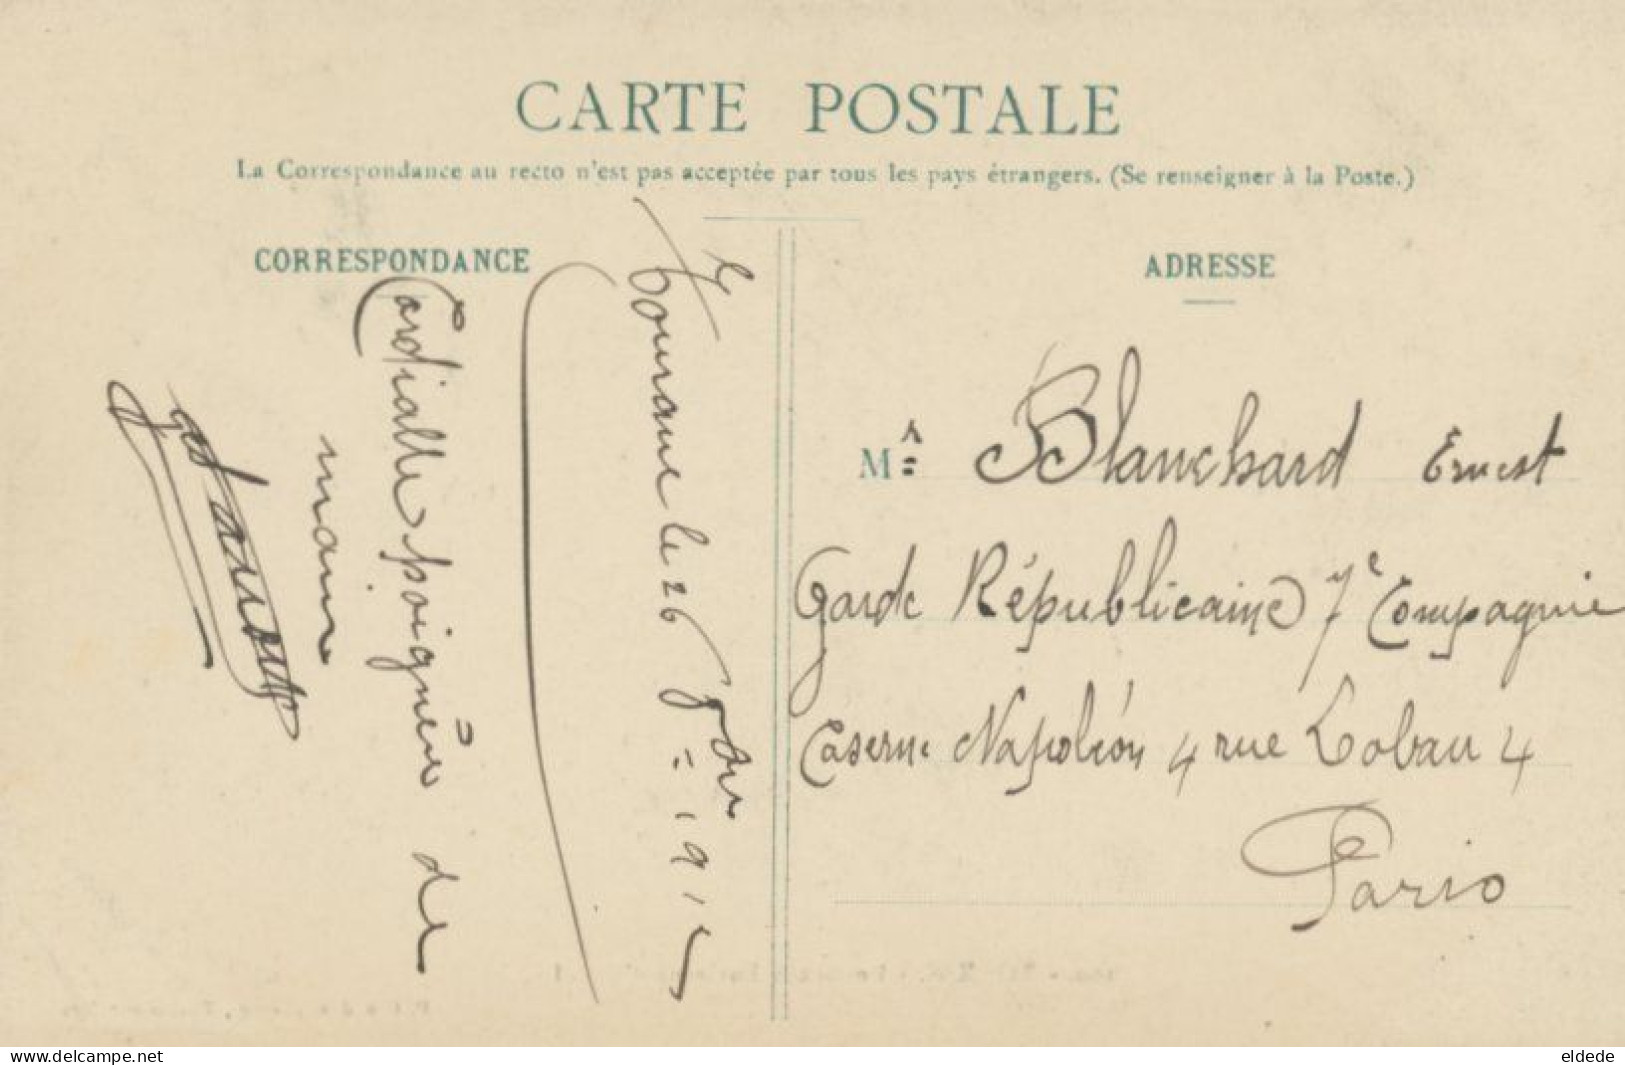 CARTE POSTALE
La Correspondance au recto n'est pas acceptée par tous les pays étrangers. (Se renseigner à la Poste.)
CORRESPONDANCE
Tourane le 26 = 191
Cordialle poignée de
main
ADRESSE
M Blanchard Ernest
Garde Républicaine 7e Compagnie
Caserne Napoléon 4 rue Lobau 4
Paris
www.delcampe.net
eldede